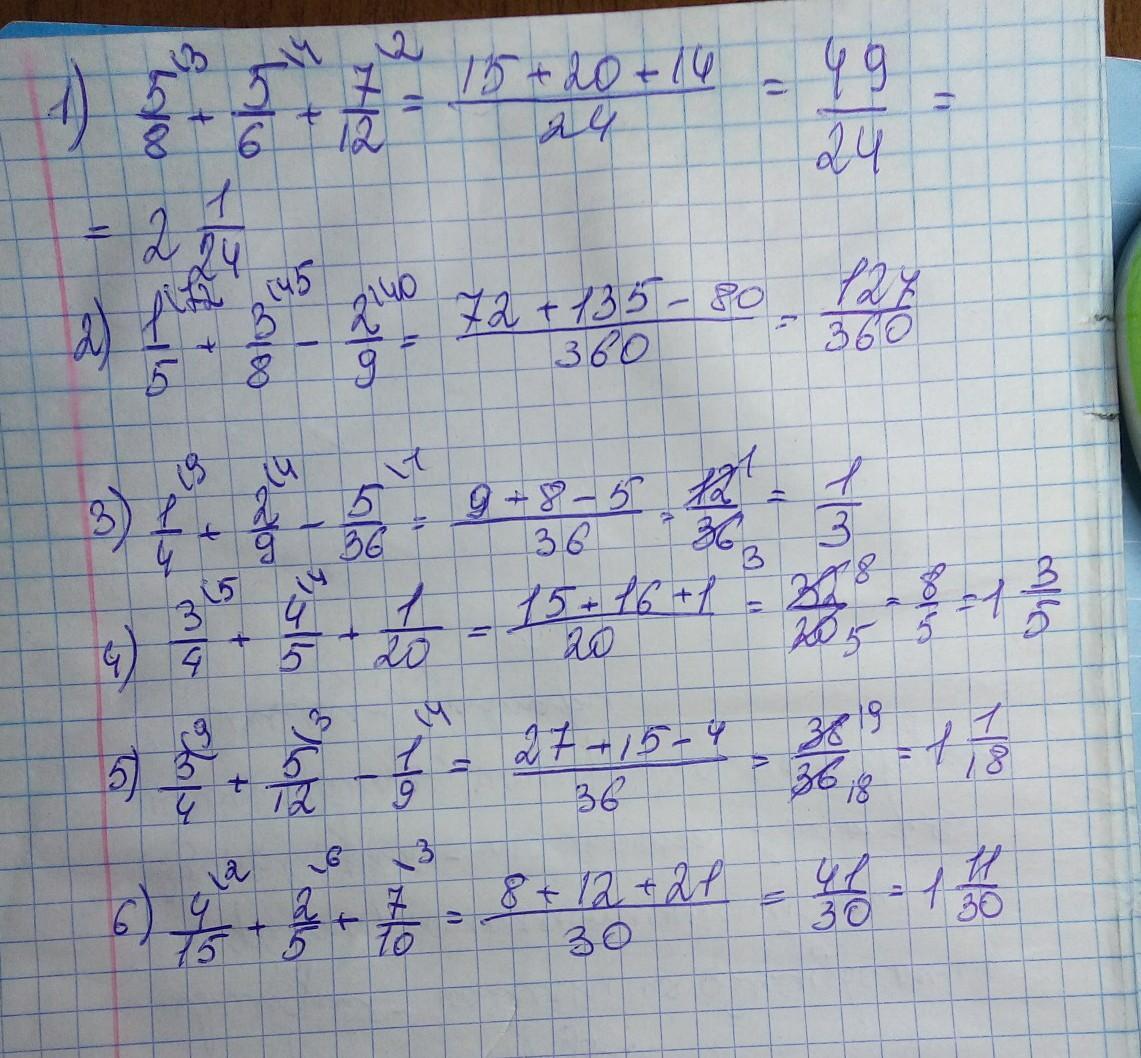 1) 5/8 \3 + 5/6 \4 + 7/12 \2 = (15 + 20 + 14)/24 = 49/24 =
= 2 1/24
2) 1/5 \72 + 3/8 \45 - 2/9 \40 = (72 + 135 - 80)/360 = 127/360
3) 1/4 \9 + 2/9 \4 - 5/36 \1 = (9 + 8 - 5)/36 = 12/36 1 3 = 1/3
4) 3/4 \5 + 4/5 \4 + 1/20 = (15 + 16 + 1)/20 = 32/20 8 5 = 8/5 = 1 3/5
5) 3/4 \9 + 5/12 \3 - 1/9 \4 = (27 + 15 - 4)/36 = 38/36 19 18 = 1 1/18
6) 4/15 \2 + 2/5 \6 + 7/10 \3 = (8 + 12 + 21)/30 = 41/30 = 1 11/30